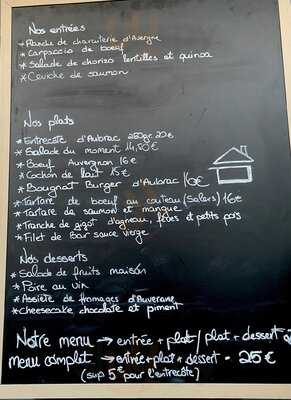 Nos entrées
* Planche de charcuterie d'Auvergne
* Carpaccio de boeuf
* Salade de chorizo lentilles et quinoa
* Ceviche de saumon
Nos plats
* Entrecôte d'Aubrac 250gr 20€
* Salade du moment 14,50€
* Boeuf Auvergnon 16€
* Cochon de lait 15€
* Bougnat Burger d'Aubrac 16€
* Tartare de boeuf au couteau (Salers) 16€
* Tartare de saumon et mangue
* Tranche de gigot d'agneau, fèves et petits pois
* Filet de Bar sauce vierge
Nos desserts
* Salade de fruits maison
* Poire au vin
* Assiette de fromages d'Auvergne
* Cheesecake chocolate et piment
Notre menu → entrée + plat / plat + dessert
menu complet → entrée + plat + dessert - 25€
(sup 5€ pour l'entrecôte)